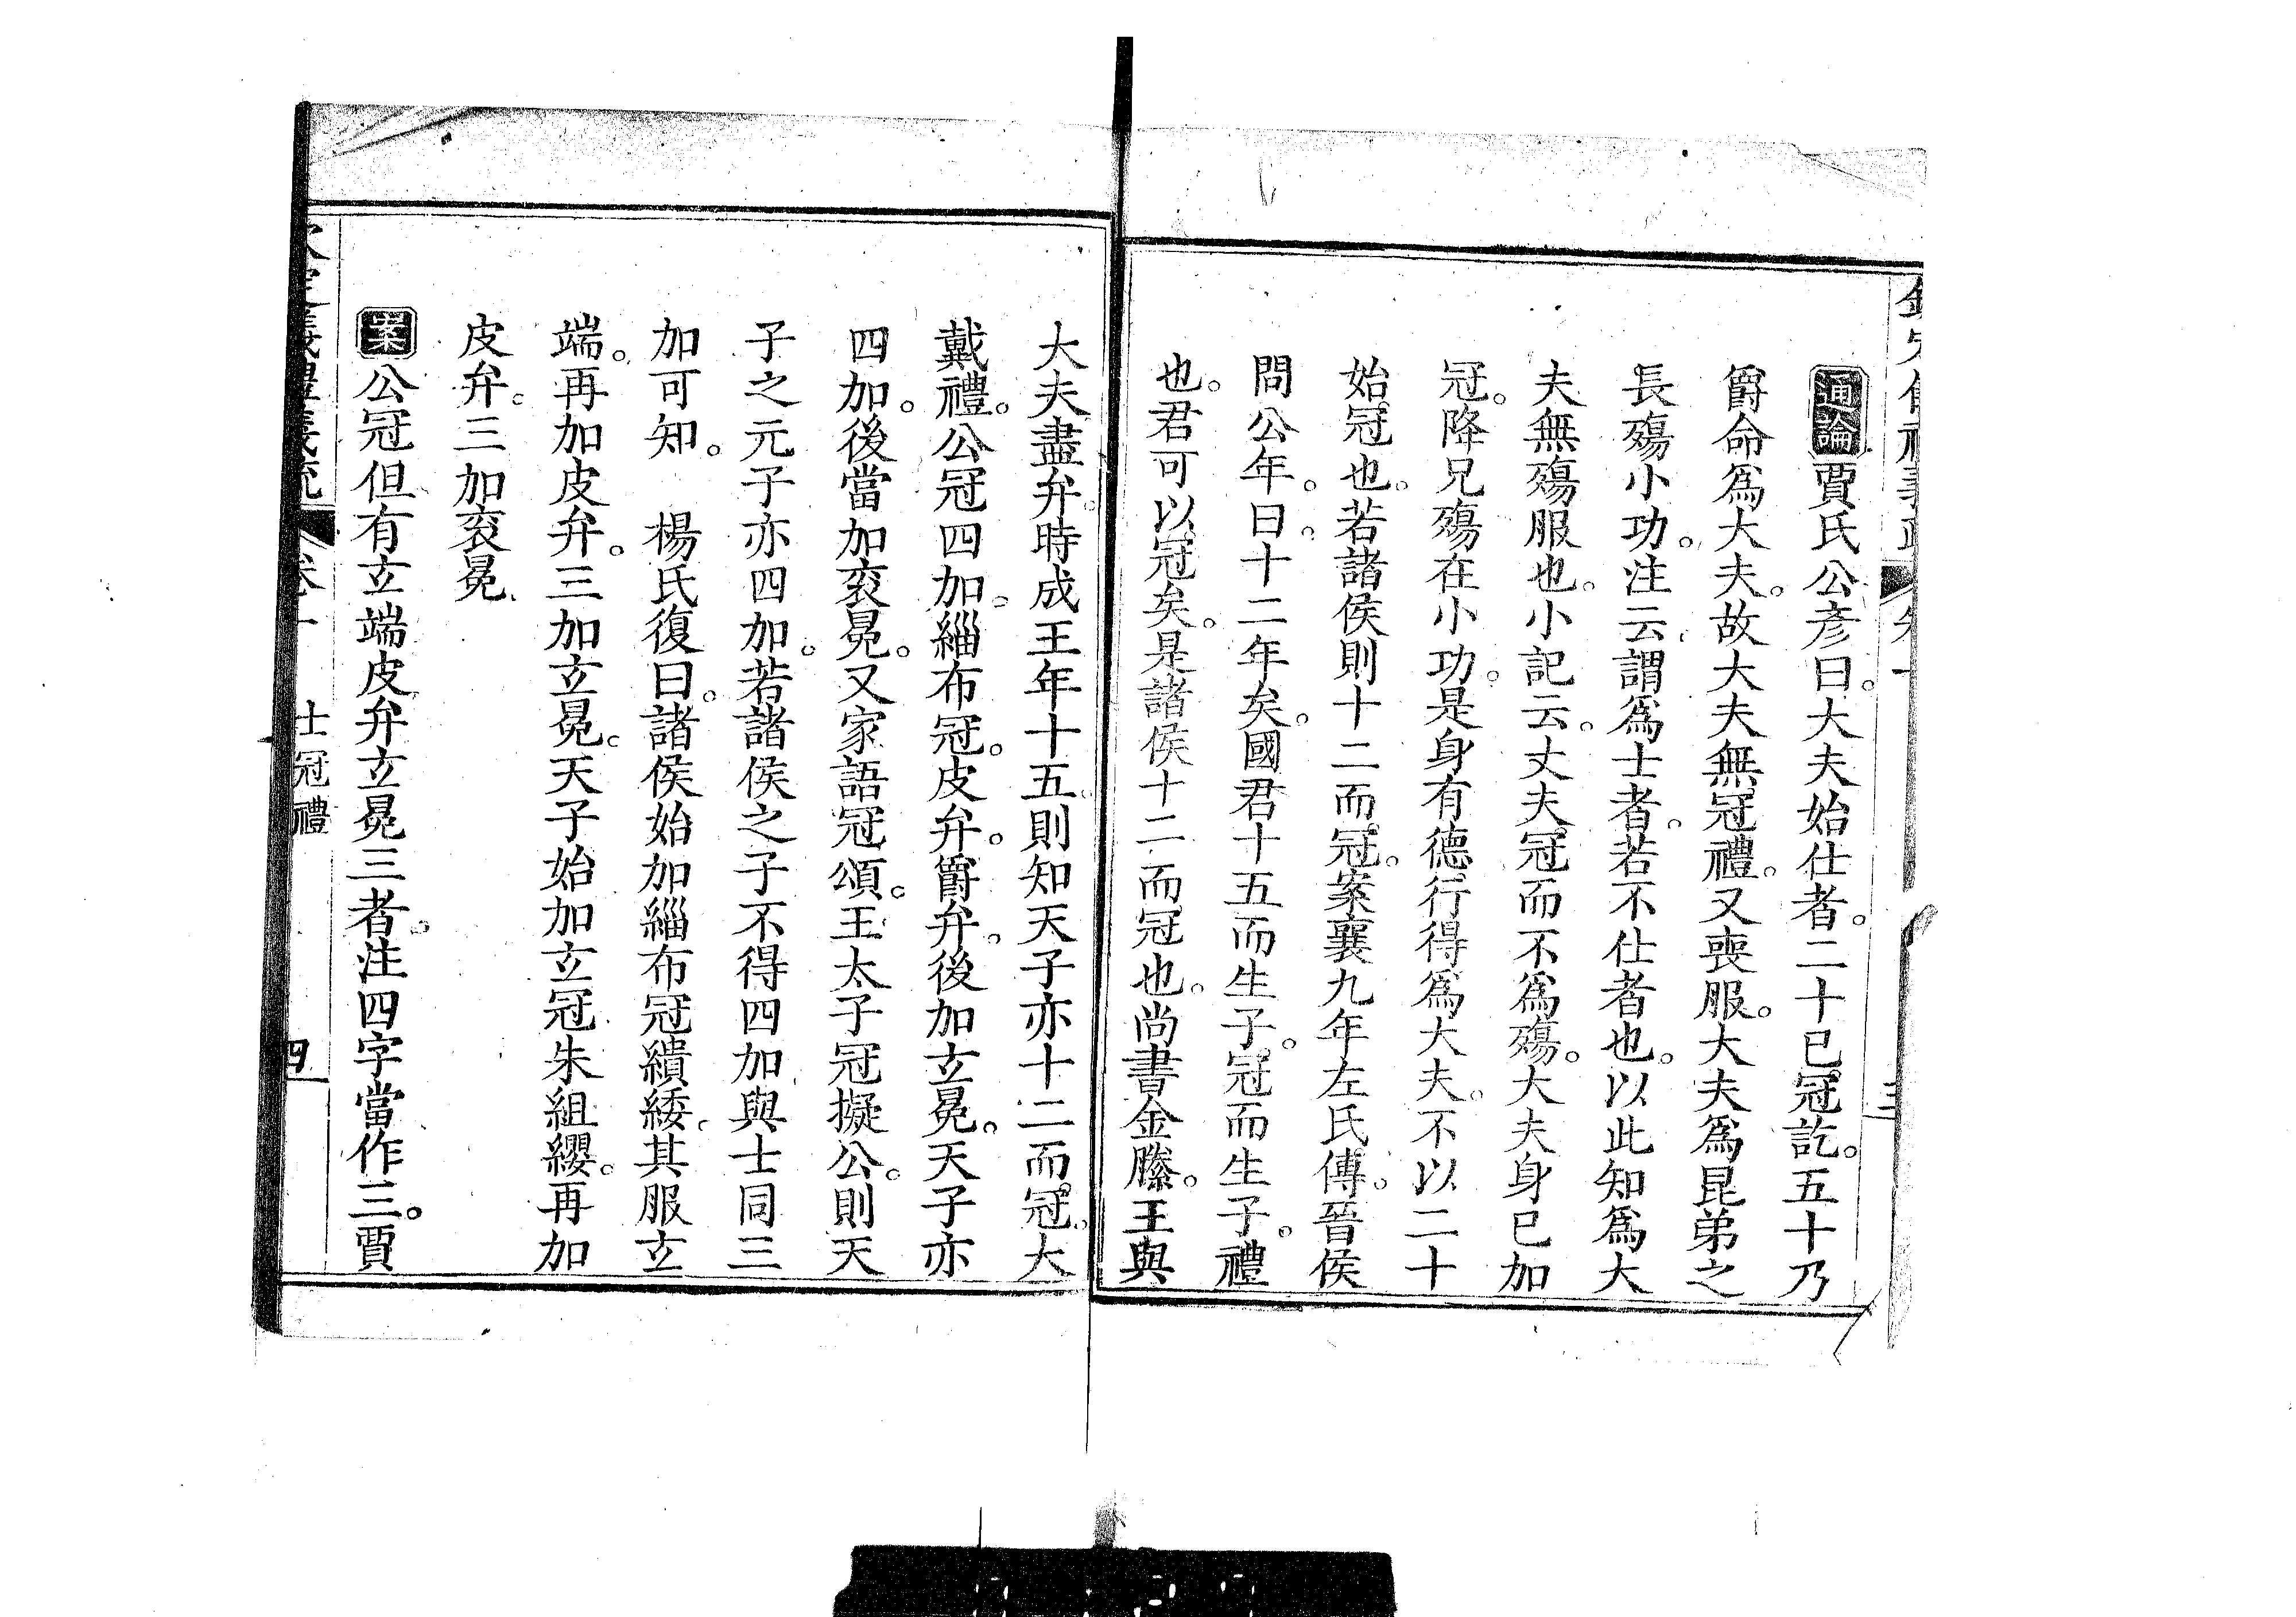 通論賈氏公彥曰。大夫始仕者。二十已冠訖。五十乃
爵命爲大夫。故大夫無冠禮。又喪服。大夫爲昆弟之
長殤小功。注云。謂爲士者。若不仕者也。以此知爲大
夫無殤服也。小記云。丈夫冠而不爲殤。大夫身已加
冠。降兄殤在小功。是身有德行得爲大夫。不以二十
始冠也。若諸侯則十二而冠。案襄九年左氏傳。晉侯
問公年。曰。十二年矣。國君十五而生子。冠而生子。禮
也。君可以冠矣。是諸侯十二而冠也。尚書金縢。王與
大夫盡弁。時成王年十五。則知天子亦十二而冠。大
戴禮。公冠四加。緇布冠。皮弁。爵弁。後加玄冕。天子亦
四加。後當加衮冕。又家語冠頌。王太子冠擬公。則天
子之元子亦四加。若諸侯之子不得四加。與士同三
加可知。　楊氏復曰。諸侯始加緇布冠繢緌。其服玄
端。再加皮弁。三加玄冕。天子始加玄冠朱組纓。再加
皮弁。三加衮冕
案公冠但有玄端皮弁玄冕三者。注四字當作三。賈
士冠禮
四